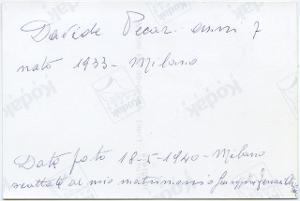 Davide Pecar anni 7
nato 1933 - Milano
Data foto 18-5-1940 - Milano
scattata al mio matrimonio
Kodak